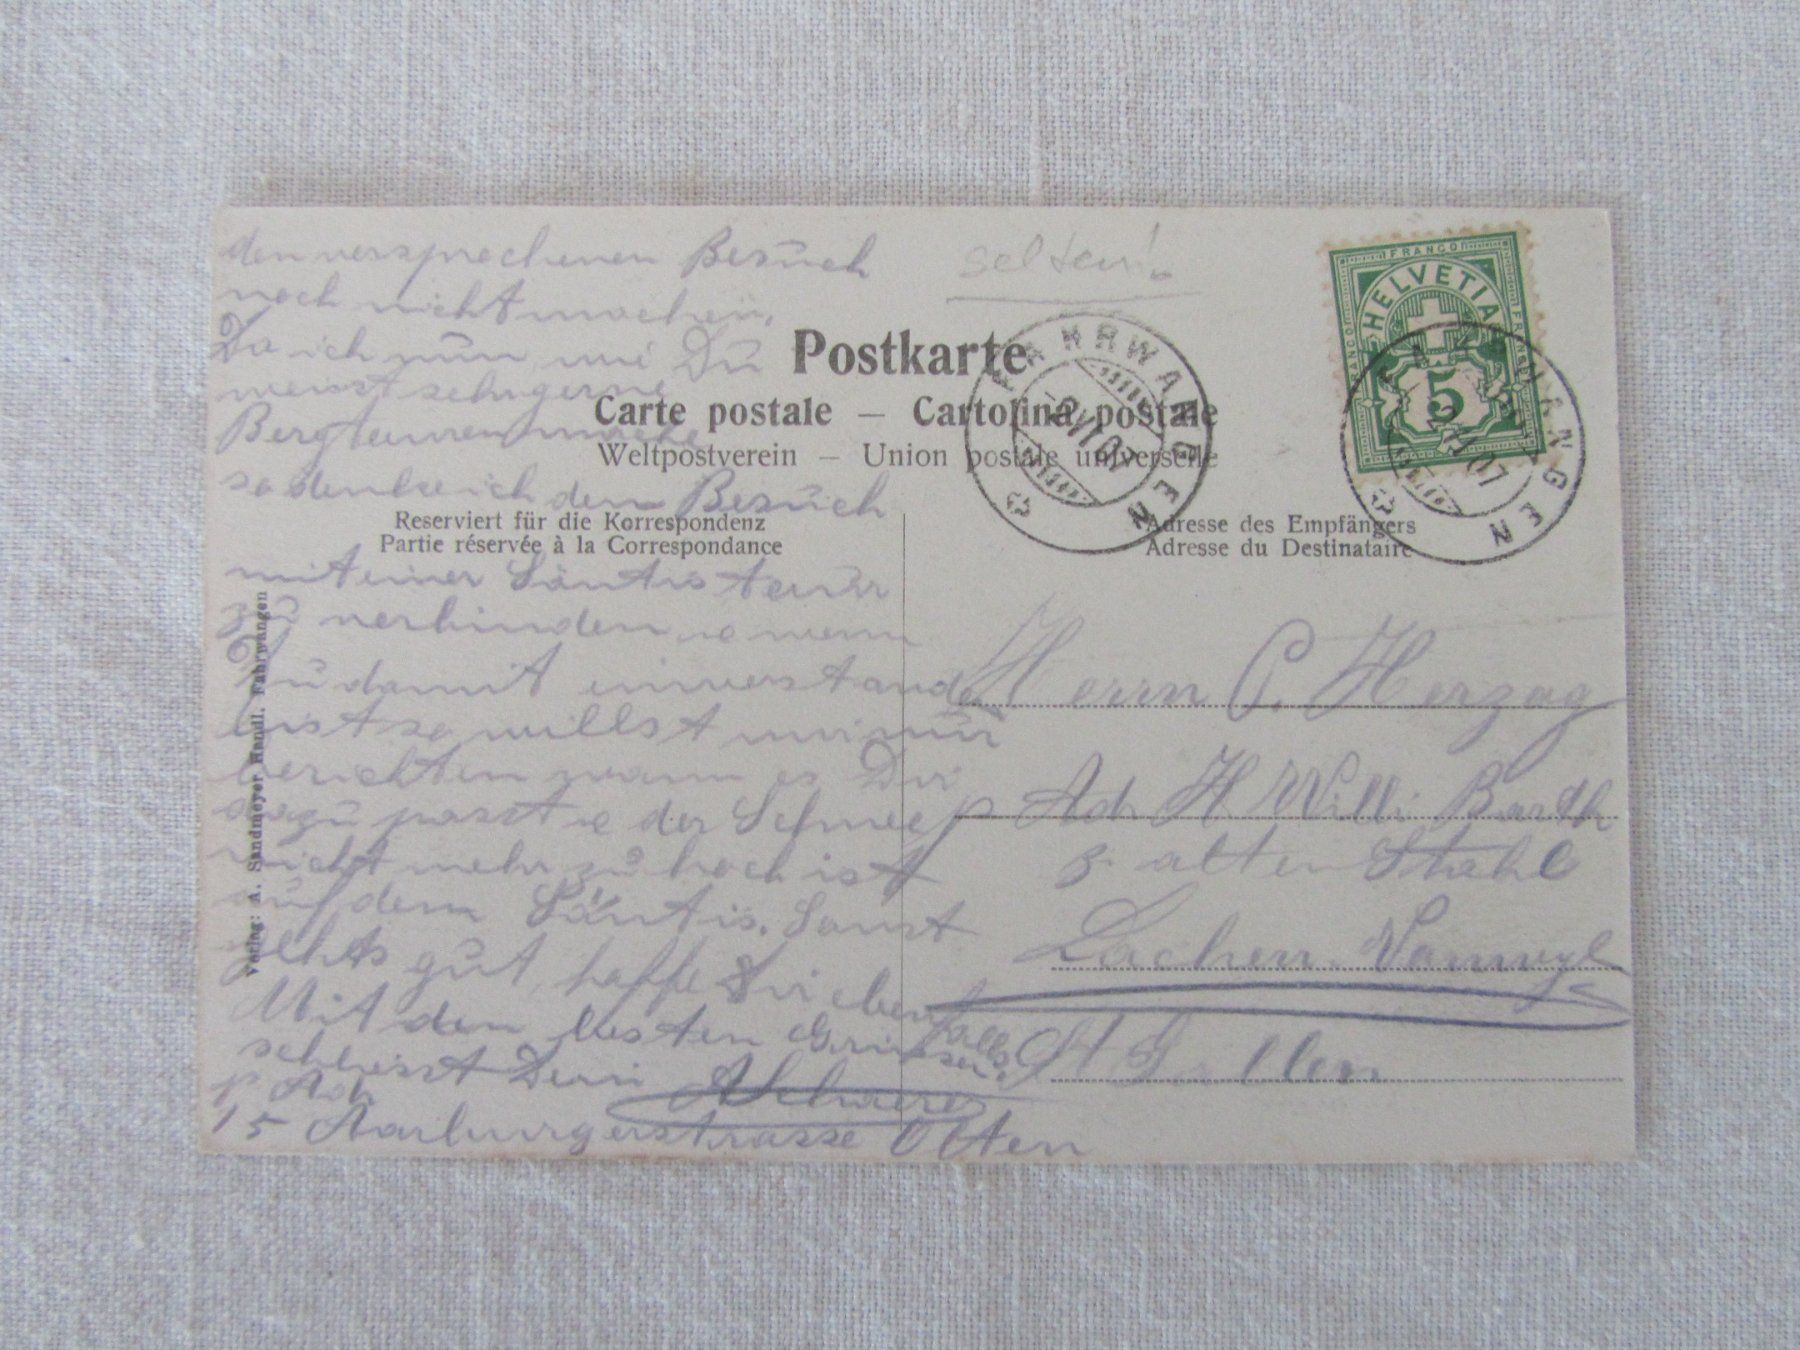 den versprochenen Besuch
noch nicht machen,
Da ich nun, wie Du
weisst sehr gerne
Bergtouren mache
so denke ich den Besuch
mit einer Säntistour
zu verbinden, e wenn
Du damit einverstanden
bist so willst mir nur
berichten wann es Dir
dazu passt e der Schnee
nicht mehr zu hoch ist
auf dem Säntis. Sonst
geht's gut, hoffe Dir ebenfalls.
Mit den besten Grüssen
schliesst Dein
p Adr
15 Aarburgerstrasse Olten
selten!
Postkarte
Carte postale — Cartolina postale
Weltpostverein — Union postale universelle
Reserviert für die Korrespondenz
Partie réservée à la Correspondance
Adresse des Empfängers
Adresse du Destinataire
FRANCO
HELVETIA
FRANCO
FRANCO
5
FAHRWANGEN
FAHRWANGEN
Herrn C. Herzog
p Adr H Willi Barth
z. alten Stahl
Lachen-Vonwyl
St Gallen
Verlag: A. Sandmeyer Handl. Fahrwangen